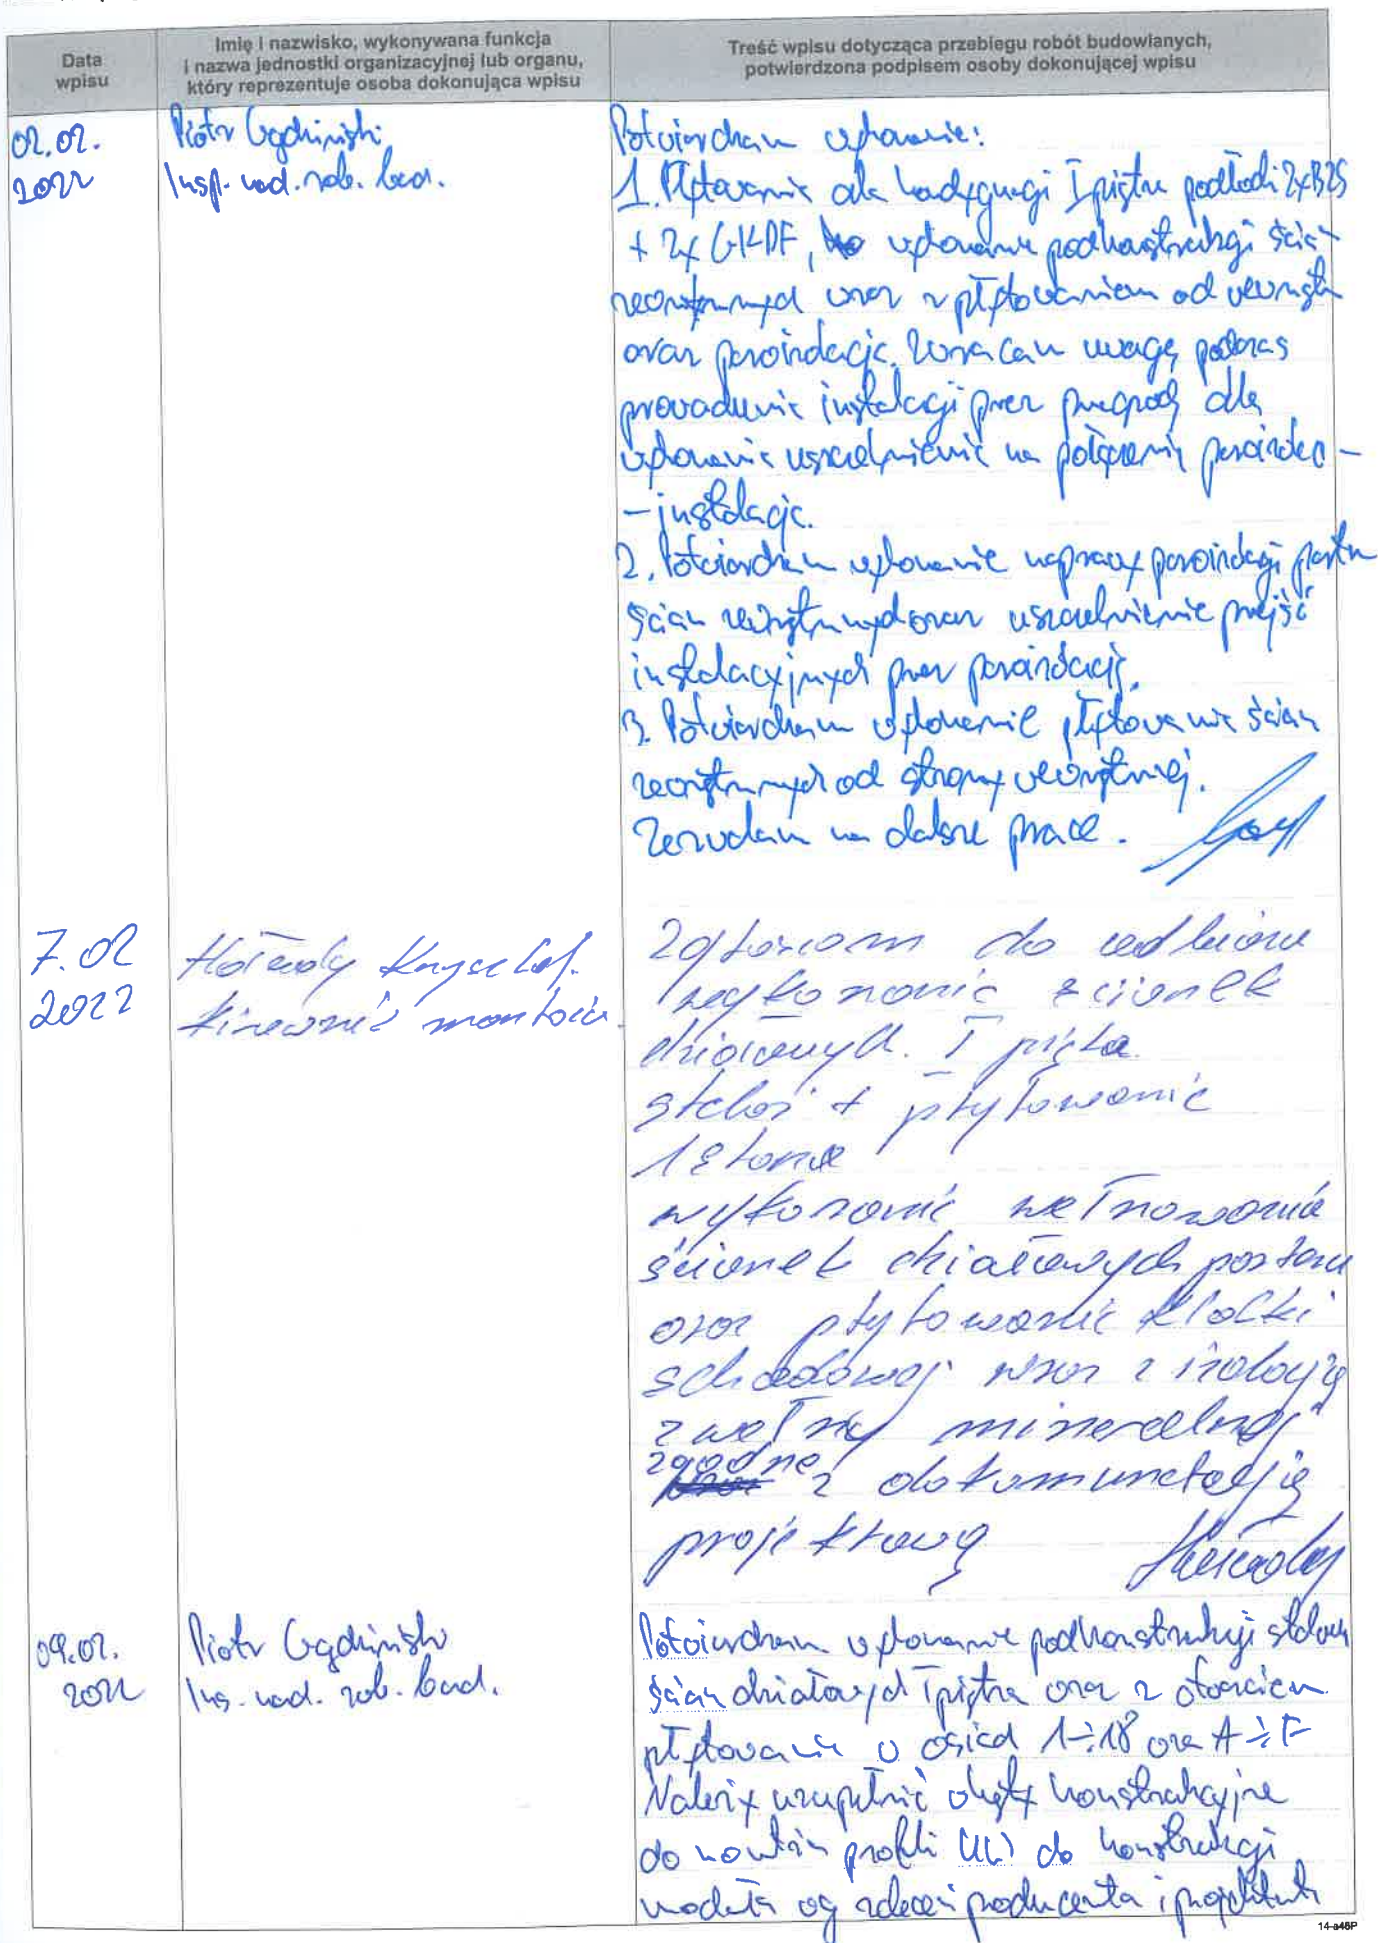 Data
wpisu
Imię i nazwisko, wykonywana funkcja
i nazwa jednostki organizacyjnej lub organu,
który reprezentuje osoba dokonująca wpisu
Treść wpisu dotycząca przebiegu robót budowlanych,
potwierdzona podpisem osoby dokonującej wpisu
02.02.
2022
Piotr
Insp. nad. rob. bud.
Potwierdzam wykonanie:
1. Płytowanie dla I piętra podłogi
+ 2x GKDF, wykonanie podkonstrukcji ścian
zewnętrznych wraz z płytowaniem od wewnątrz
oraz paroizolację. Zwracam uwagę podczas
prowadzenia instalacji przez przegrody dla
wykonania uszczelnienie na połączeniu paroizolacja -
- instalacja.
2. Potwierdzam wykonanie naprawy paroizolacji parteru
ścian zewnętrznych oraz uszczelnienie przejść
instalacyjnych przez paroizolację.
3. Potwierdzam wykonanie płytowania ścian
zewnętrznych od strony wewnętrznej.
Zezwalam na dalsze prace.
7.02
2022
Krzysztof.
kierownik montażu.
Zgłaszam do odbioru
wykonanie ścianek
działowych. I piętra
stelaż + płytowanie
1 strona
wykonanie wełnowania
ścianek działowych parteru
oraz płytowanie klatki
schodowej wraz z izolacją
z wełny mineralnej
zgodne z dokumentacją
projektową
09.02.
2022
Piotr
Ins. nad. rob. bud.
Potwierdzam wykonanie podkonstrukcji
ścian działowych I piętra oraz z otwarciem
płytowania w osiach 1÷18 oraz A÷F
Należy uzupełnić konstrukcyjne
do montażu profili UW do konstrukcji
wg zaleceń producenta i projektanta
14-a48P